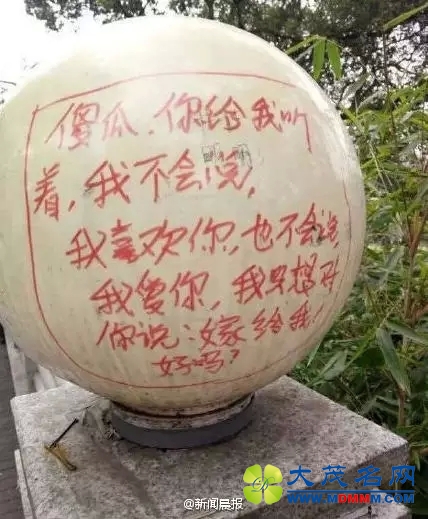 傻瓜、你给我听
着,我不会说,
我喜欢你,也不会说,
我爱你,我只想对
你说:嫁给我!
好吗?
大茂名网
@新闻晨报